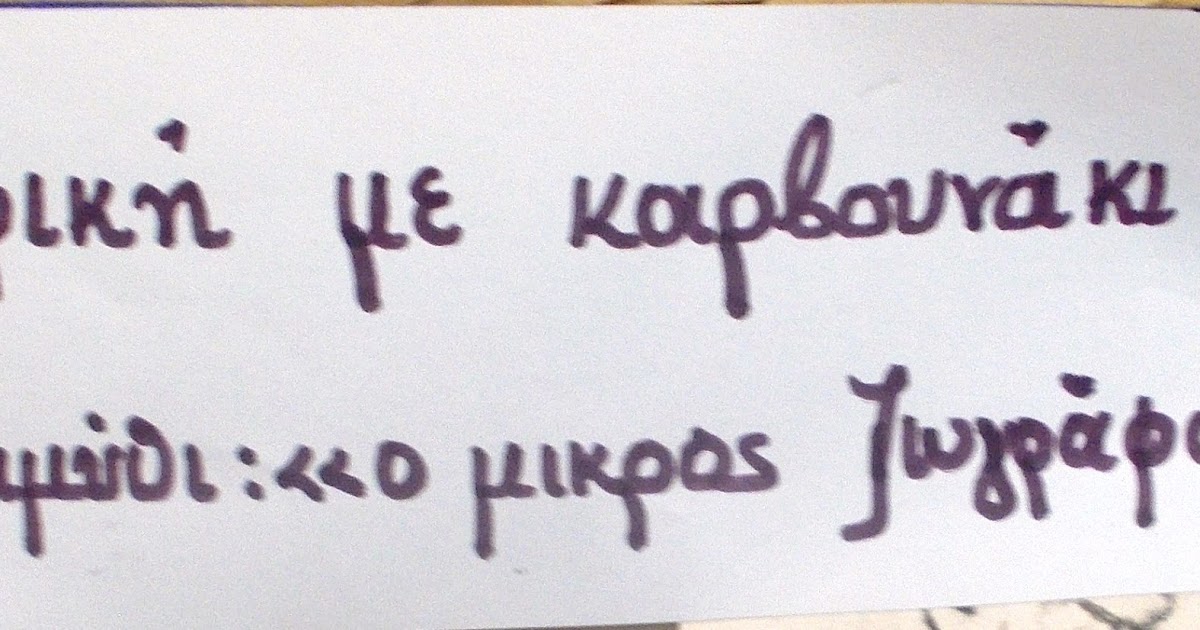 ρική με καρβουνάκι
αμύθι: «ο μικρος ζωγράφο